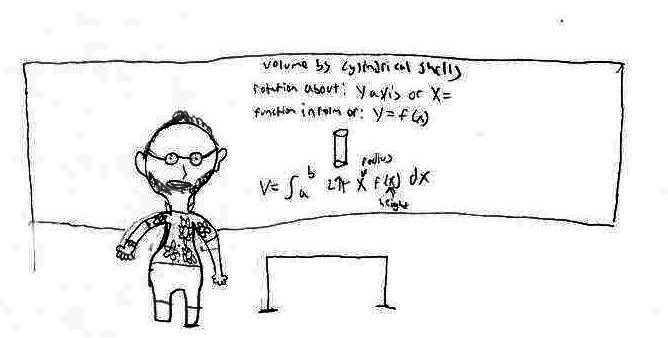 volume by cylindrical shells
rotation about: y axis or x=
function in form of: y=f(x)
radius
V= ∫ₐᵇ 2π x f(x) dx
height